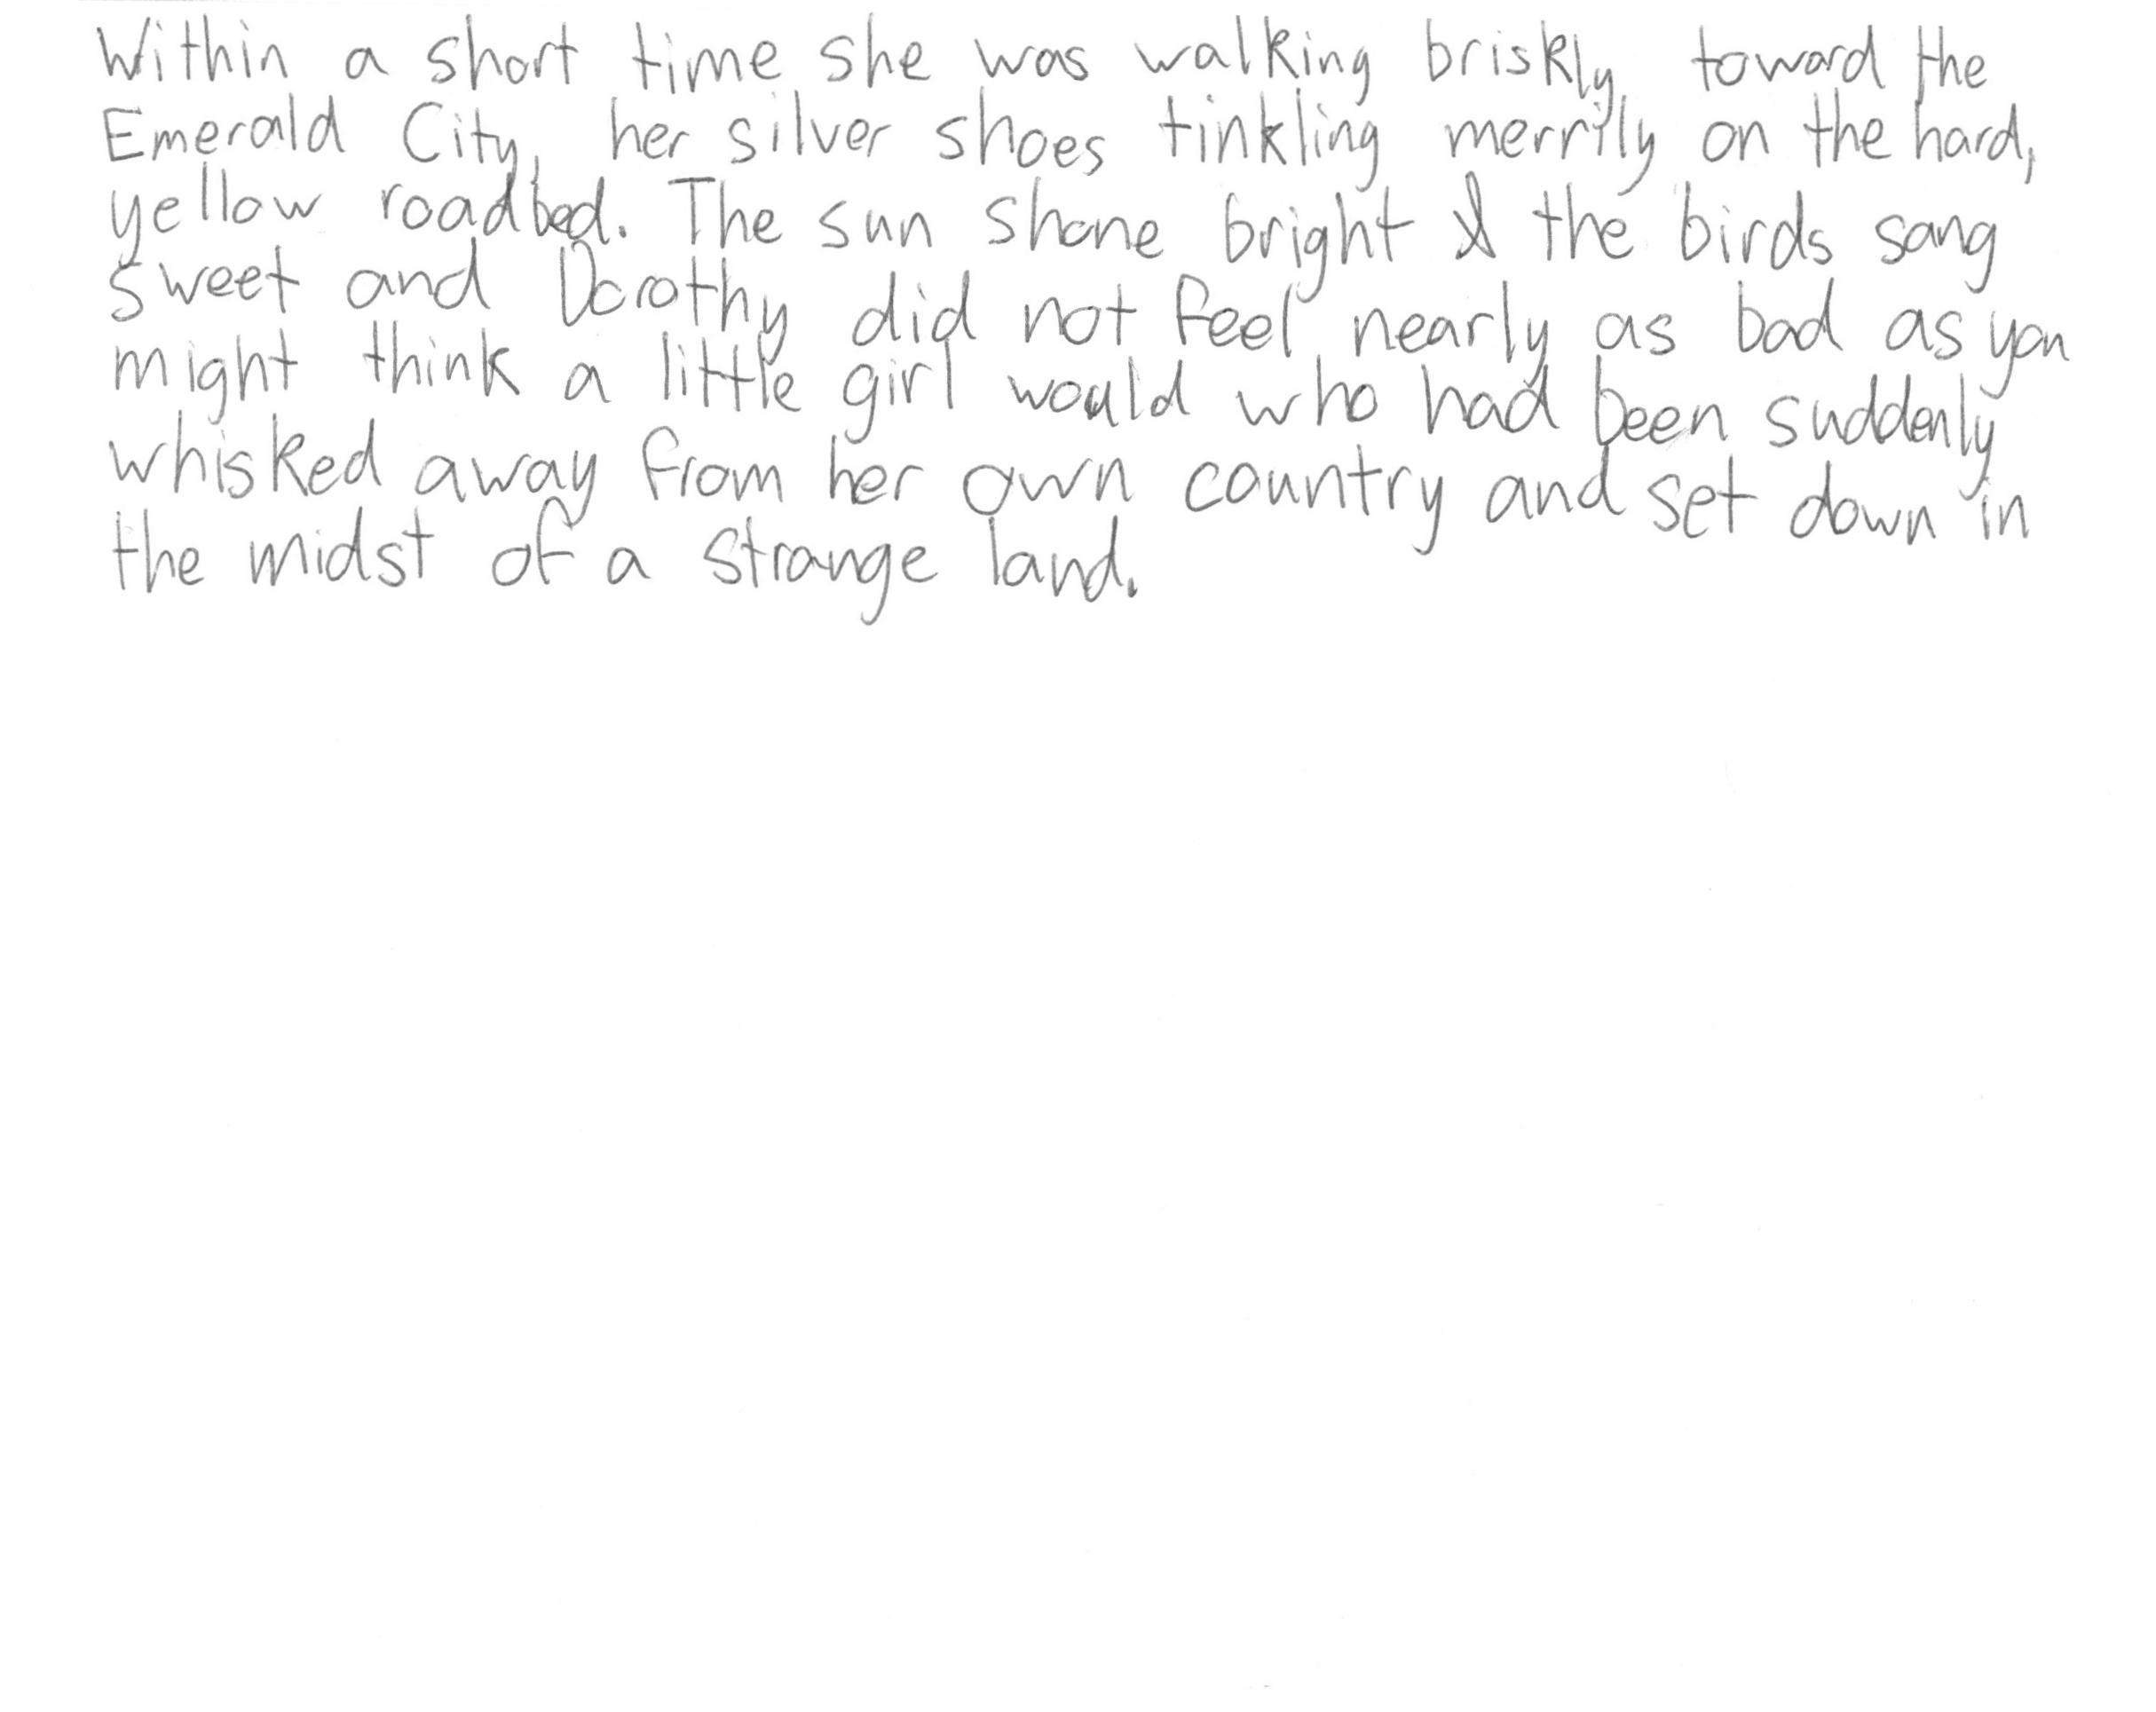 Within a short time she was walking briskly toward the
Emerald City, her silver shoes tinkling merrily on the hard,
yellow roadbed. The sun shone bright & the birds sang
sweet and Dorothy did not feel nearly as bad as you
might think a little girl would who had been suddenly
whisked away from her own country and set down in
the midst of a strange land.